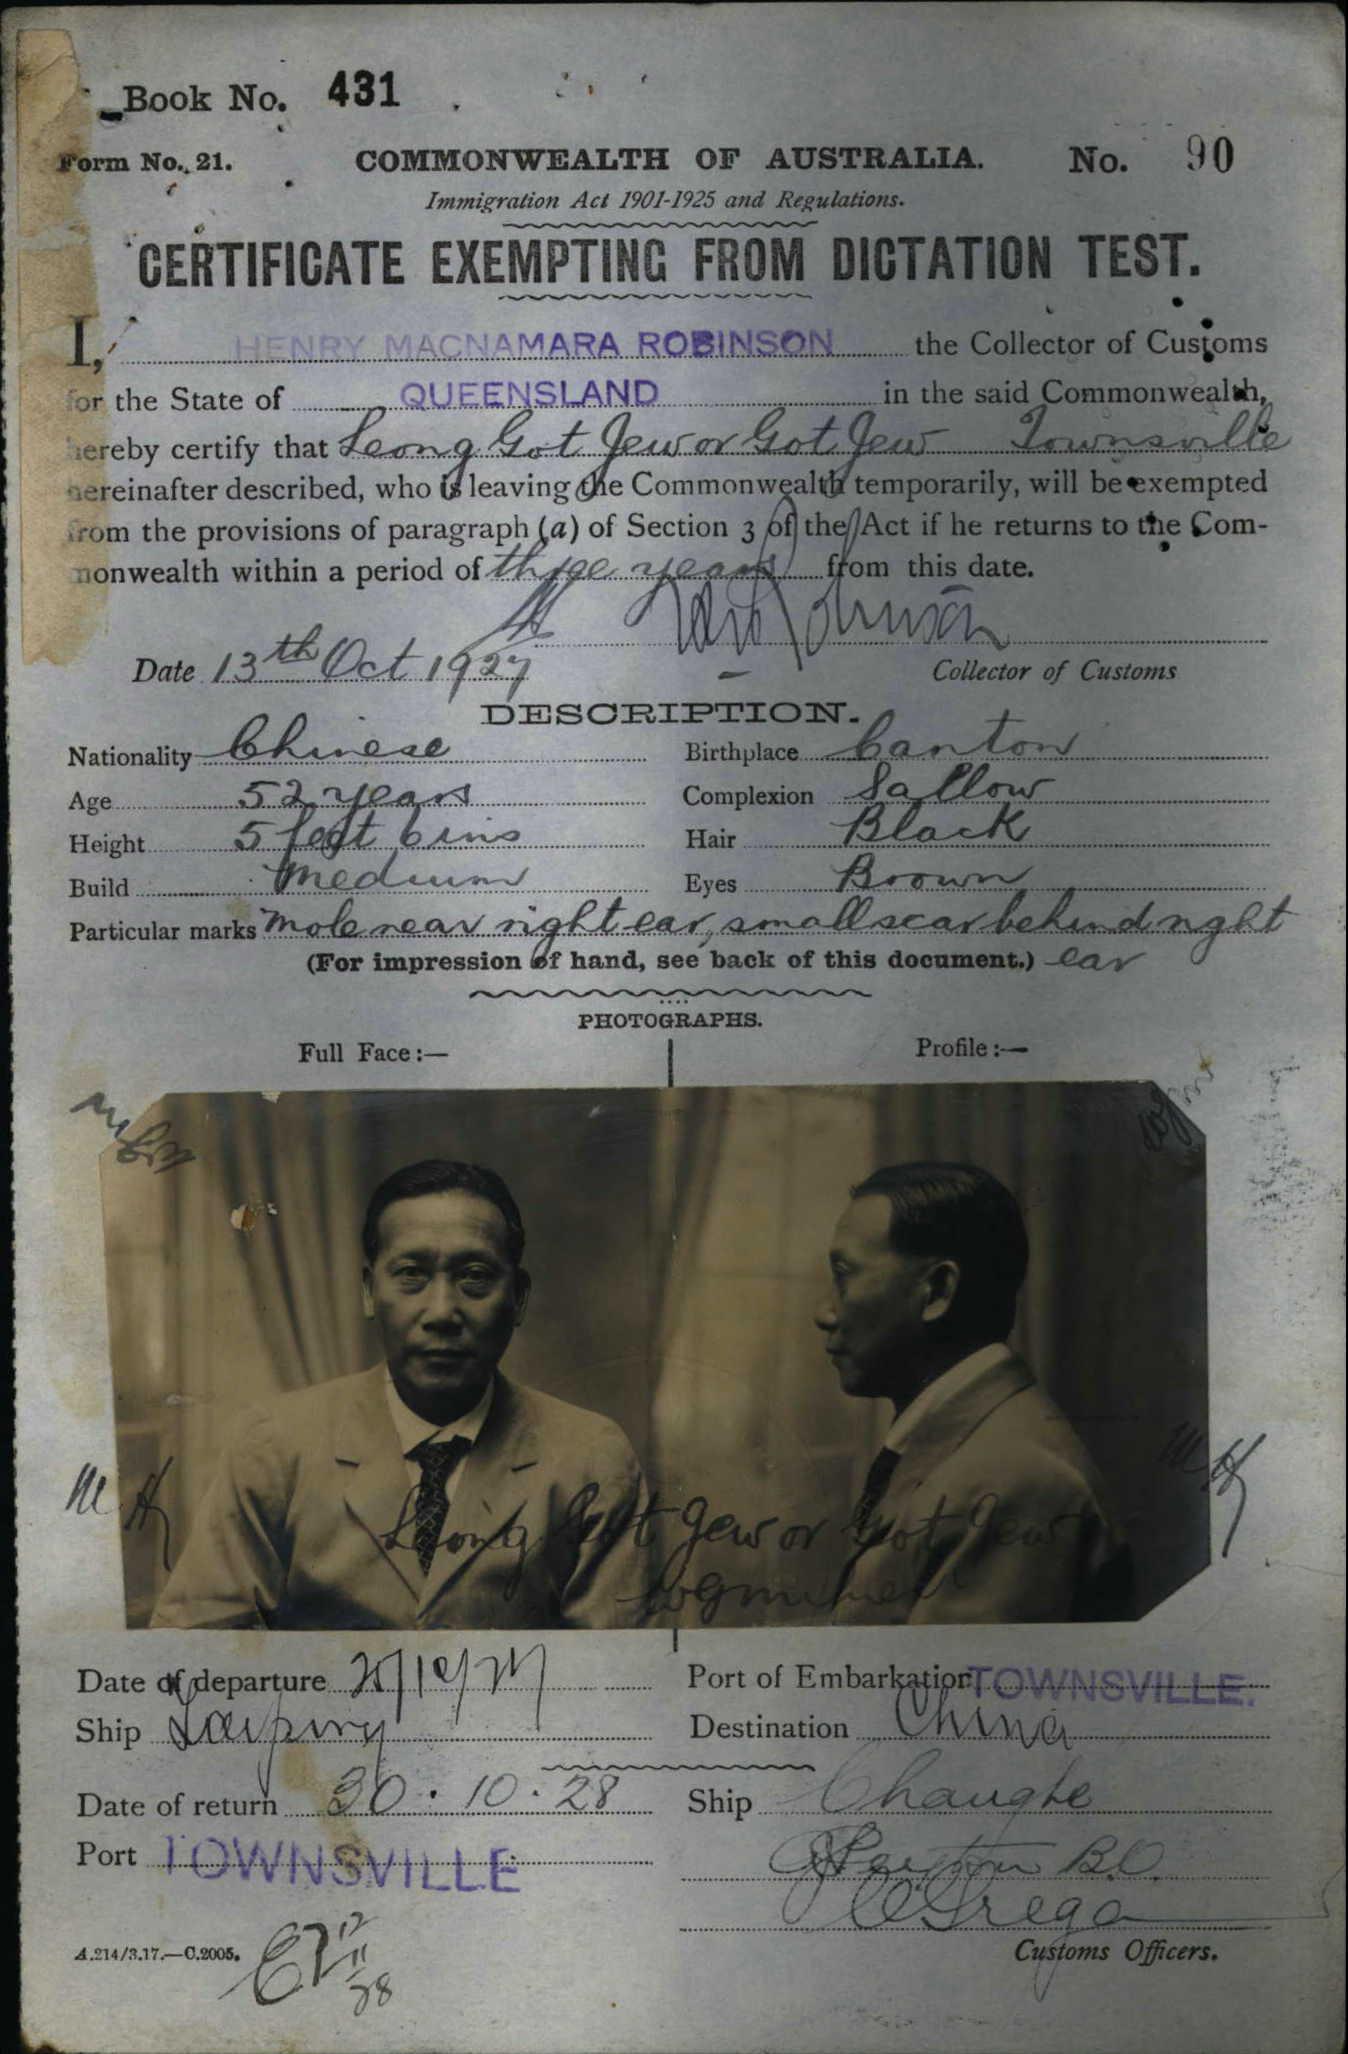 Book No. 431
Form No. 21. COMMONWEALTH OF AUSTRALIA. No. 90
Immigration Act 1901-1925 and Regulations.
CERTIFICATE EXEMPTING FROM DICTATION TEST.
I, HENRY MACNAMARA ROBINSON the Collector of Customs
for the State of QUEENSLAND in the said Commonwealth,
hereby certify that Leong Got Jew or Got Jew Townsville
hereinafter described, who is leaving the Commonwealth temporarily, will be exempted
from the provisions of paragraph (a) of Section 3 of the Act if he returns to the Com-
monwealth within a period of three years from this date.
Date 13th Oct 1927 Collector of Customs
DESCRIPTION.
Nationality Chinese Birthplace Canton
Age 52 years Complexion Sallow
Height 5 feet 6 ins Hair Black
Build Medium Eyes Brown
Particular marks Mole near right ear, small scar behind right
(For impression of hand, see back of this document.) ear
PHOTOGRAPHS.
Full Face:— Profile:—
M.H M.H
Leong Got Jew or Got Jew
Date of departure 25/10/27 Port of Embarkation TOWNSVILLE.
Ship Taiping Destination China
Date of return 30.10.28 Ship Changte
Port TOWNSVILLE B.O.
Customs Officers.
A.214/3.17.—C.2005.
12
11
28